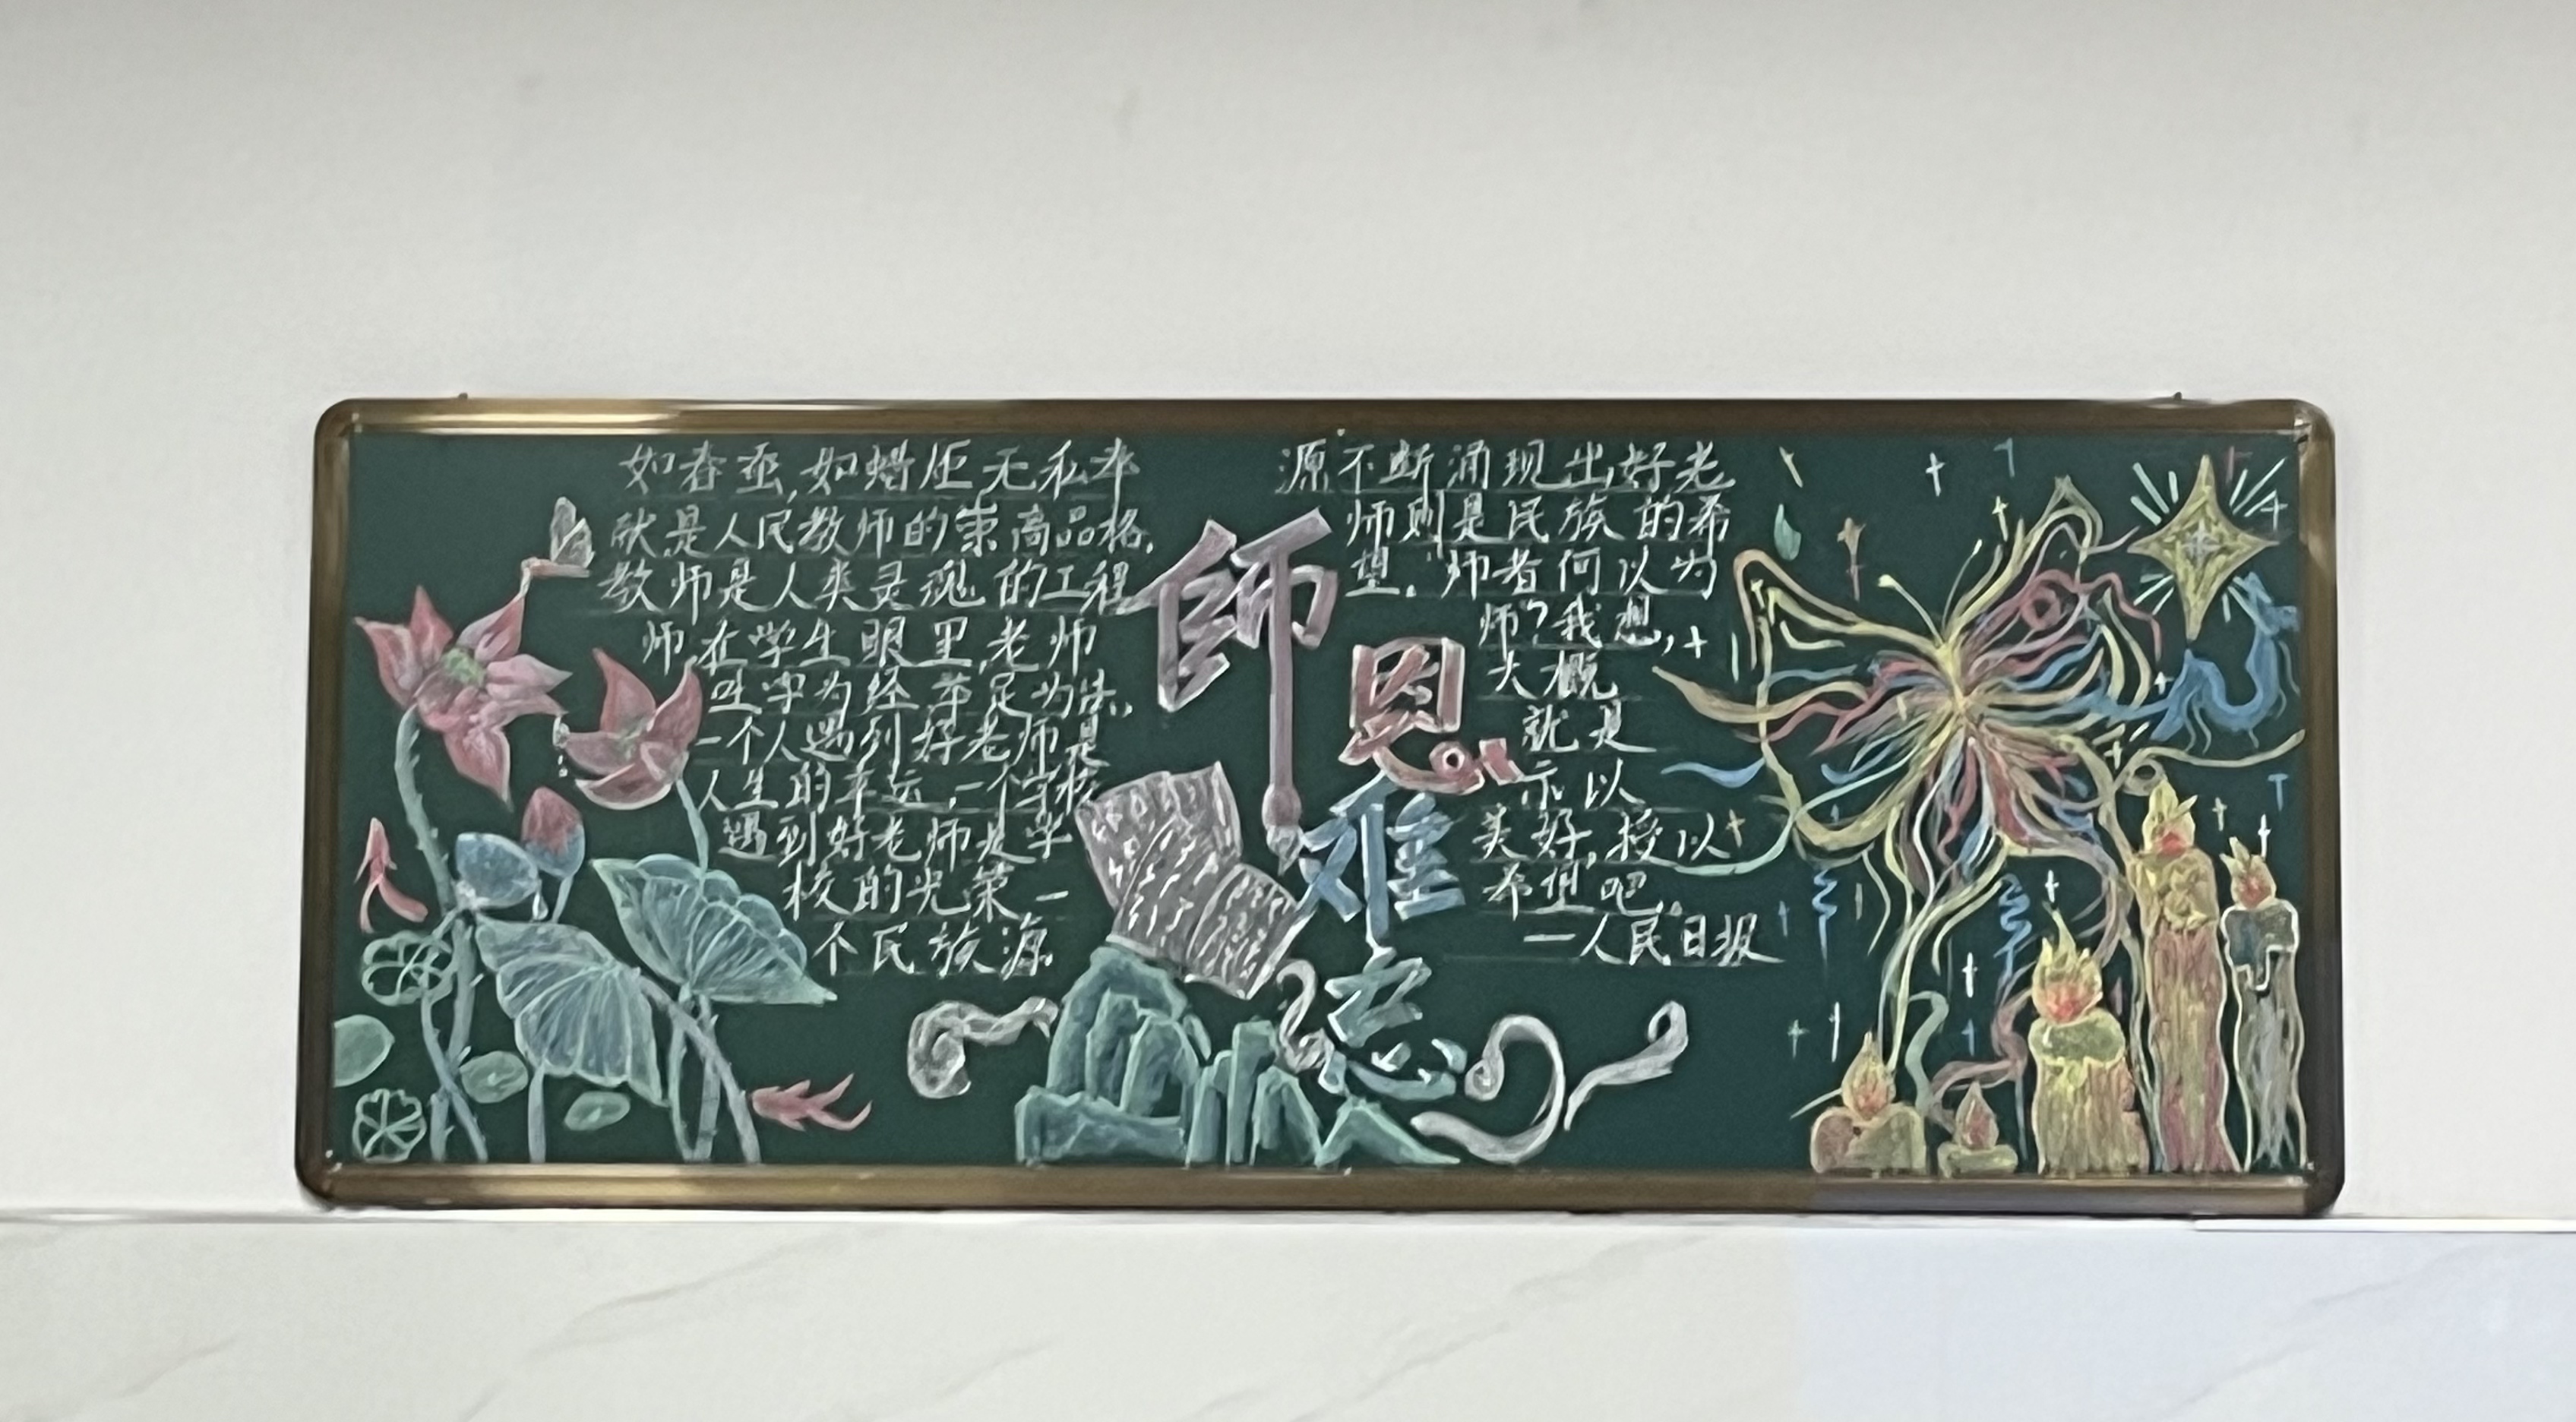 如春蚕,如蜡炬,无私奉
献,是人民教师的崇高品格,
教师是人类灵魂的工程
师,在学生眼里,老师
吐字为经,举足为法,
一个人遇到好老师是
人生的幸运,一个学校
遇到好老师是学
校的光荣,一
个民族源
源不断涌现出好老
师则是民族的希
望。师者何以为
师?我想,
大概
就是
示以
美好,授以
希望吧。
—人民日报
師恩难忘